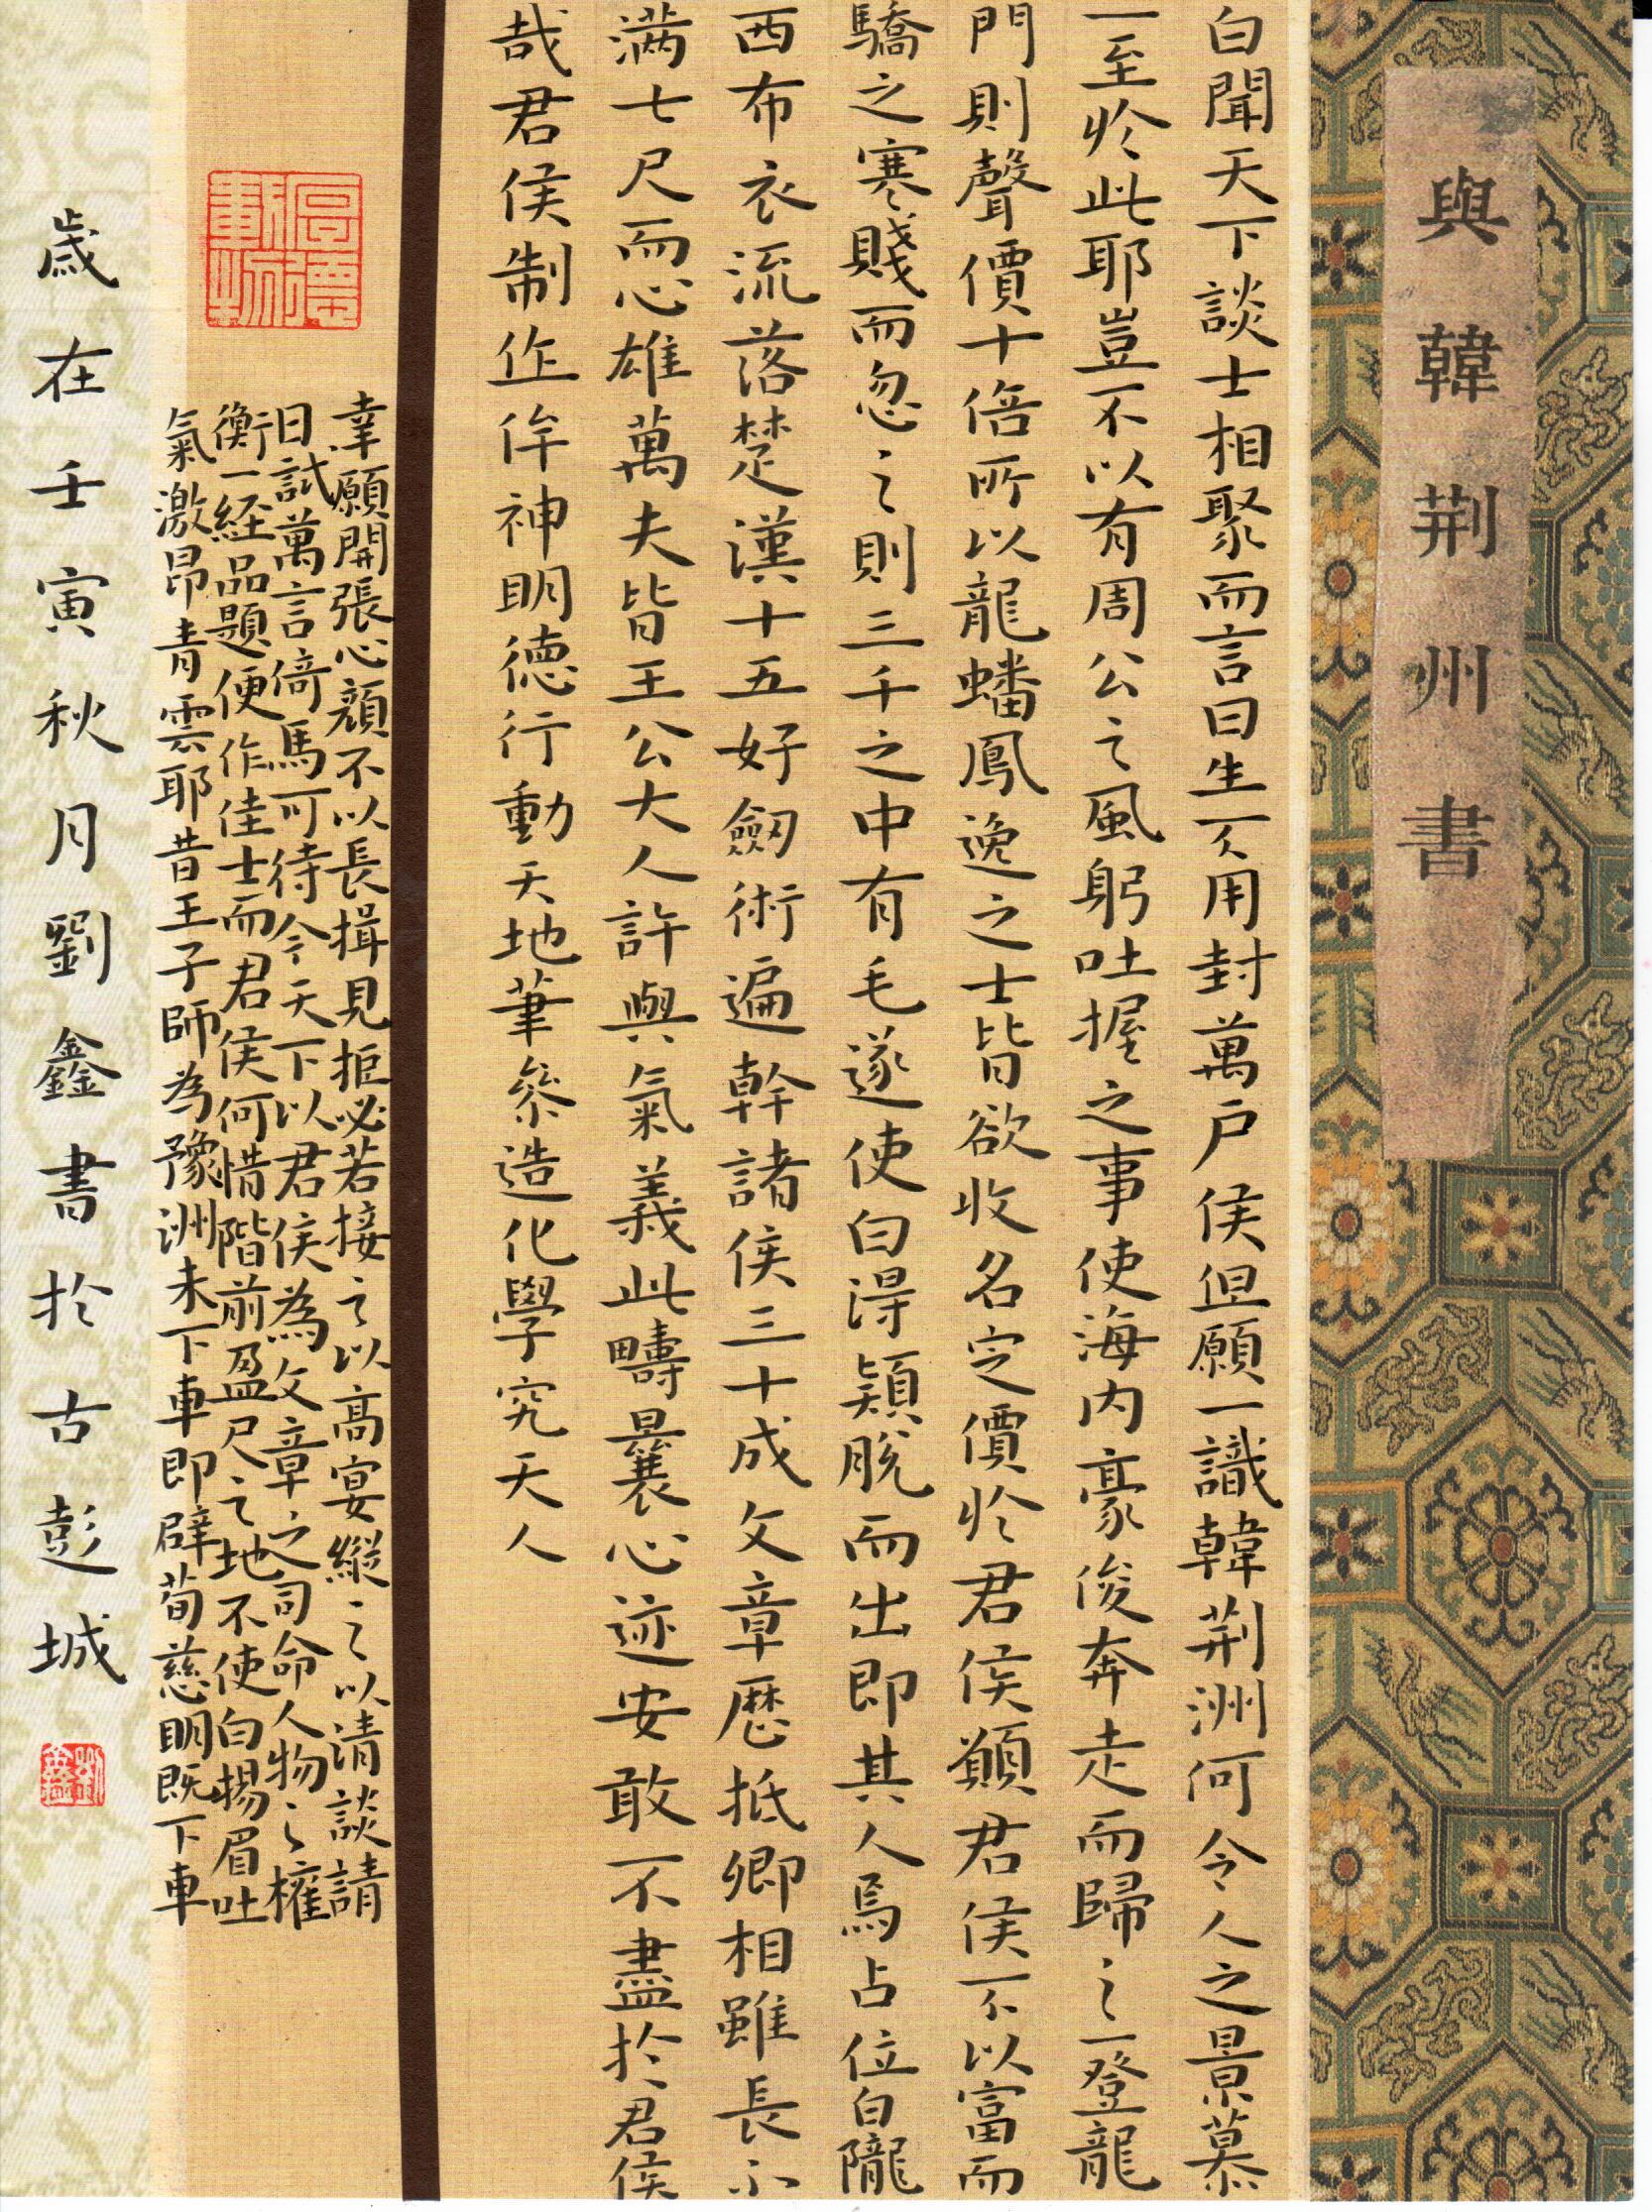 與韓荆州書
白聞天下談士相聚而言曰生不用封萬户侯但願一識韓荆洲何令人之景慕
一至於此耶豈不以有周公之風躬吐握之事使海内豪俊奔走而歸之一登龍
門則聲價十倍所以龍蟠鳳逸之士皆欲收名定價於君侯願君侯不以富而
驕之寒賤而忽之則三千之中有毛遂使白得穎脱而出即其人焉占位白隴
西布衣流落楚漢十五好劒術遍幹諸侯三十成文章歷抵卿相雖長不
满七尺而心雄萬夫皆王公大人許與氣義此疇曩心迹安敢不盡於君侯
哉君侯制作侔神明德行動天地筆叅造化學究天人
幸願開張心顔不以長揖見拒必若接之以高宴縱之以清談請
日試萬言倚馬可待今天下以君侯為文章之司命人物之權
衡一経品題便作佳士而君侯何惜階前盈尺之地不使白揚眉吐
氣激昂青雲耶昔王子師為豫洲未下車即辟荀慈明既下車
歲在壬寅秋月劉鑫書於古彭城